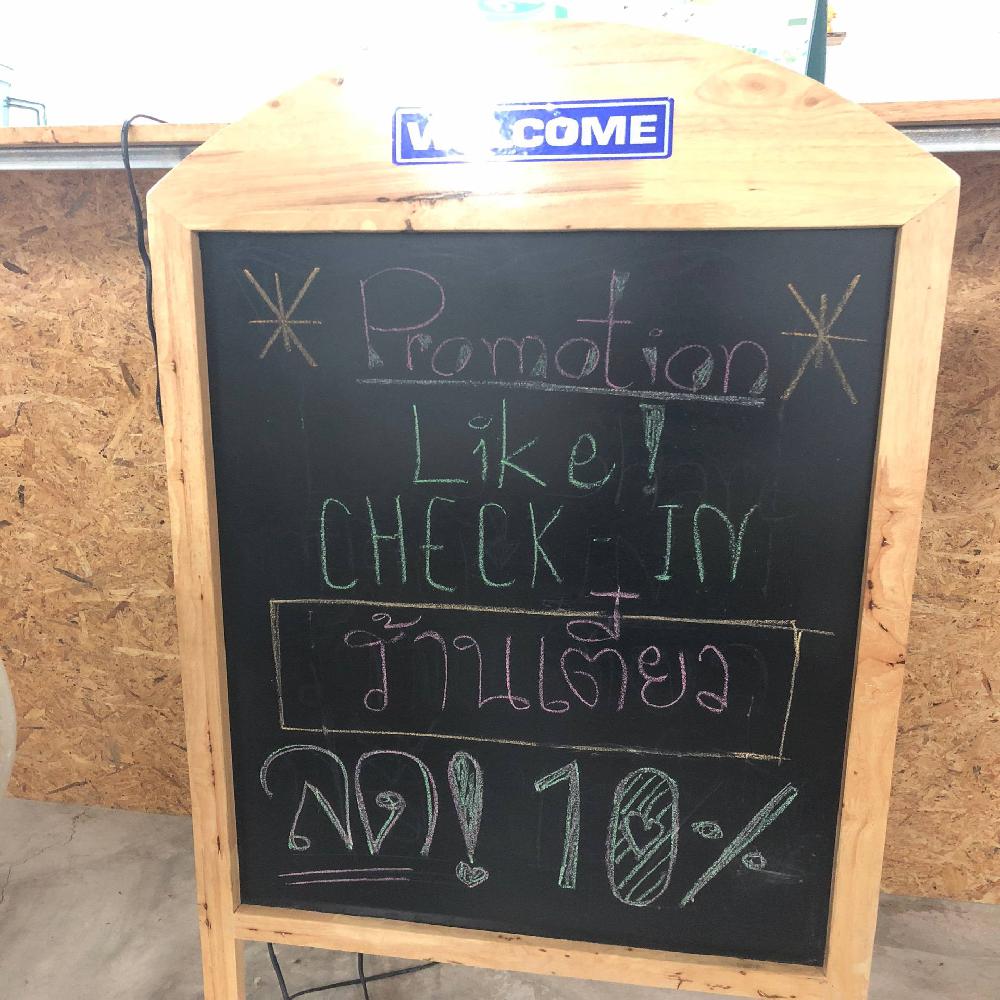 WELCOME
Promotion
Like!
CHECK-IN
ร้านเตี๋ยว
ลด! 10%